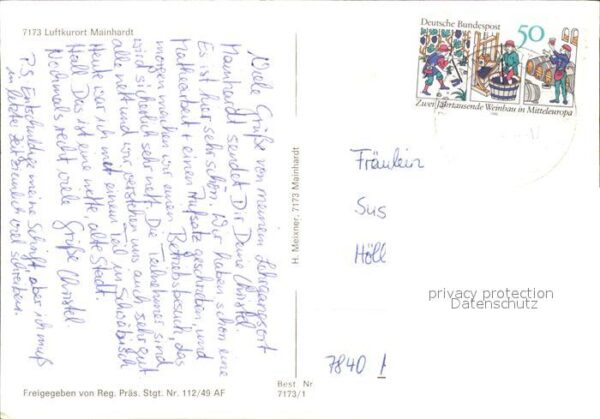 7173 Luftkurort Mainhardt
Viele Grüße von meinem Lehrgangsort
Mainhardt sendet Dir Deine Christel.
Es ist hier sehr schön. Wir haben schon eine
Mathearbeit + einen Aufsatz geschrieben, und
morgen machen wir einen Betriebsbesuch, das
wird sicherlich sehr nett. Die Teilnehmer sind
alle nett und wir verstehen uns auch sehr gut
Heute war ich mit einem Teil in Schwäbisch
Hall. Das ist eine nette, alte Stadt.
Nochmals recht viele Grüße Christel
P.S. Entschuldige meine Schrift, aber ich muß
in letzter Zeit ziemlich viel schreiben.
Freigegeben von Reg. Präs. Stgt. Nr. 112/49 AF
H. Meixner, 7173 Mainhardt
Best Nr
7173/1
Deutsche Bundespost 50
Zwei Jahrtausende Weinbau in Mitteleuropa
Fräulein
Sus
Höll
privacy protection
Datenschutz
7840 1